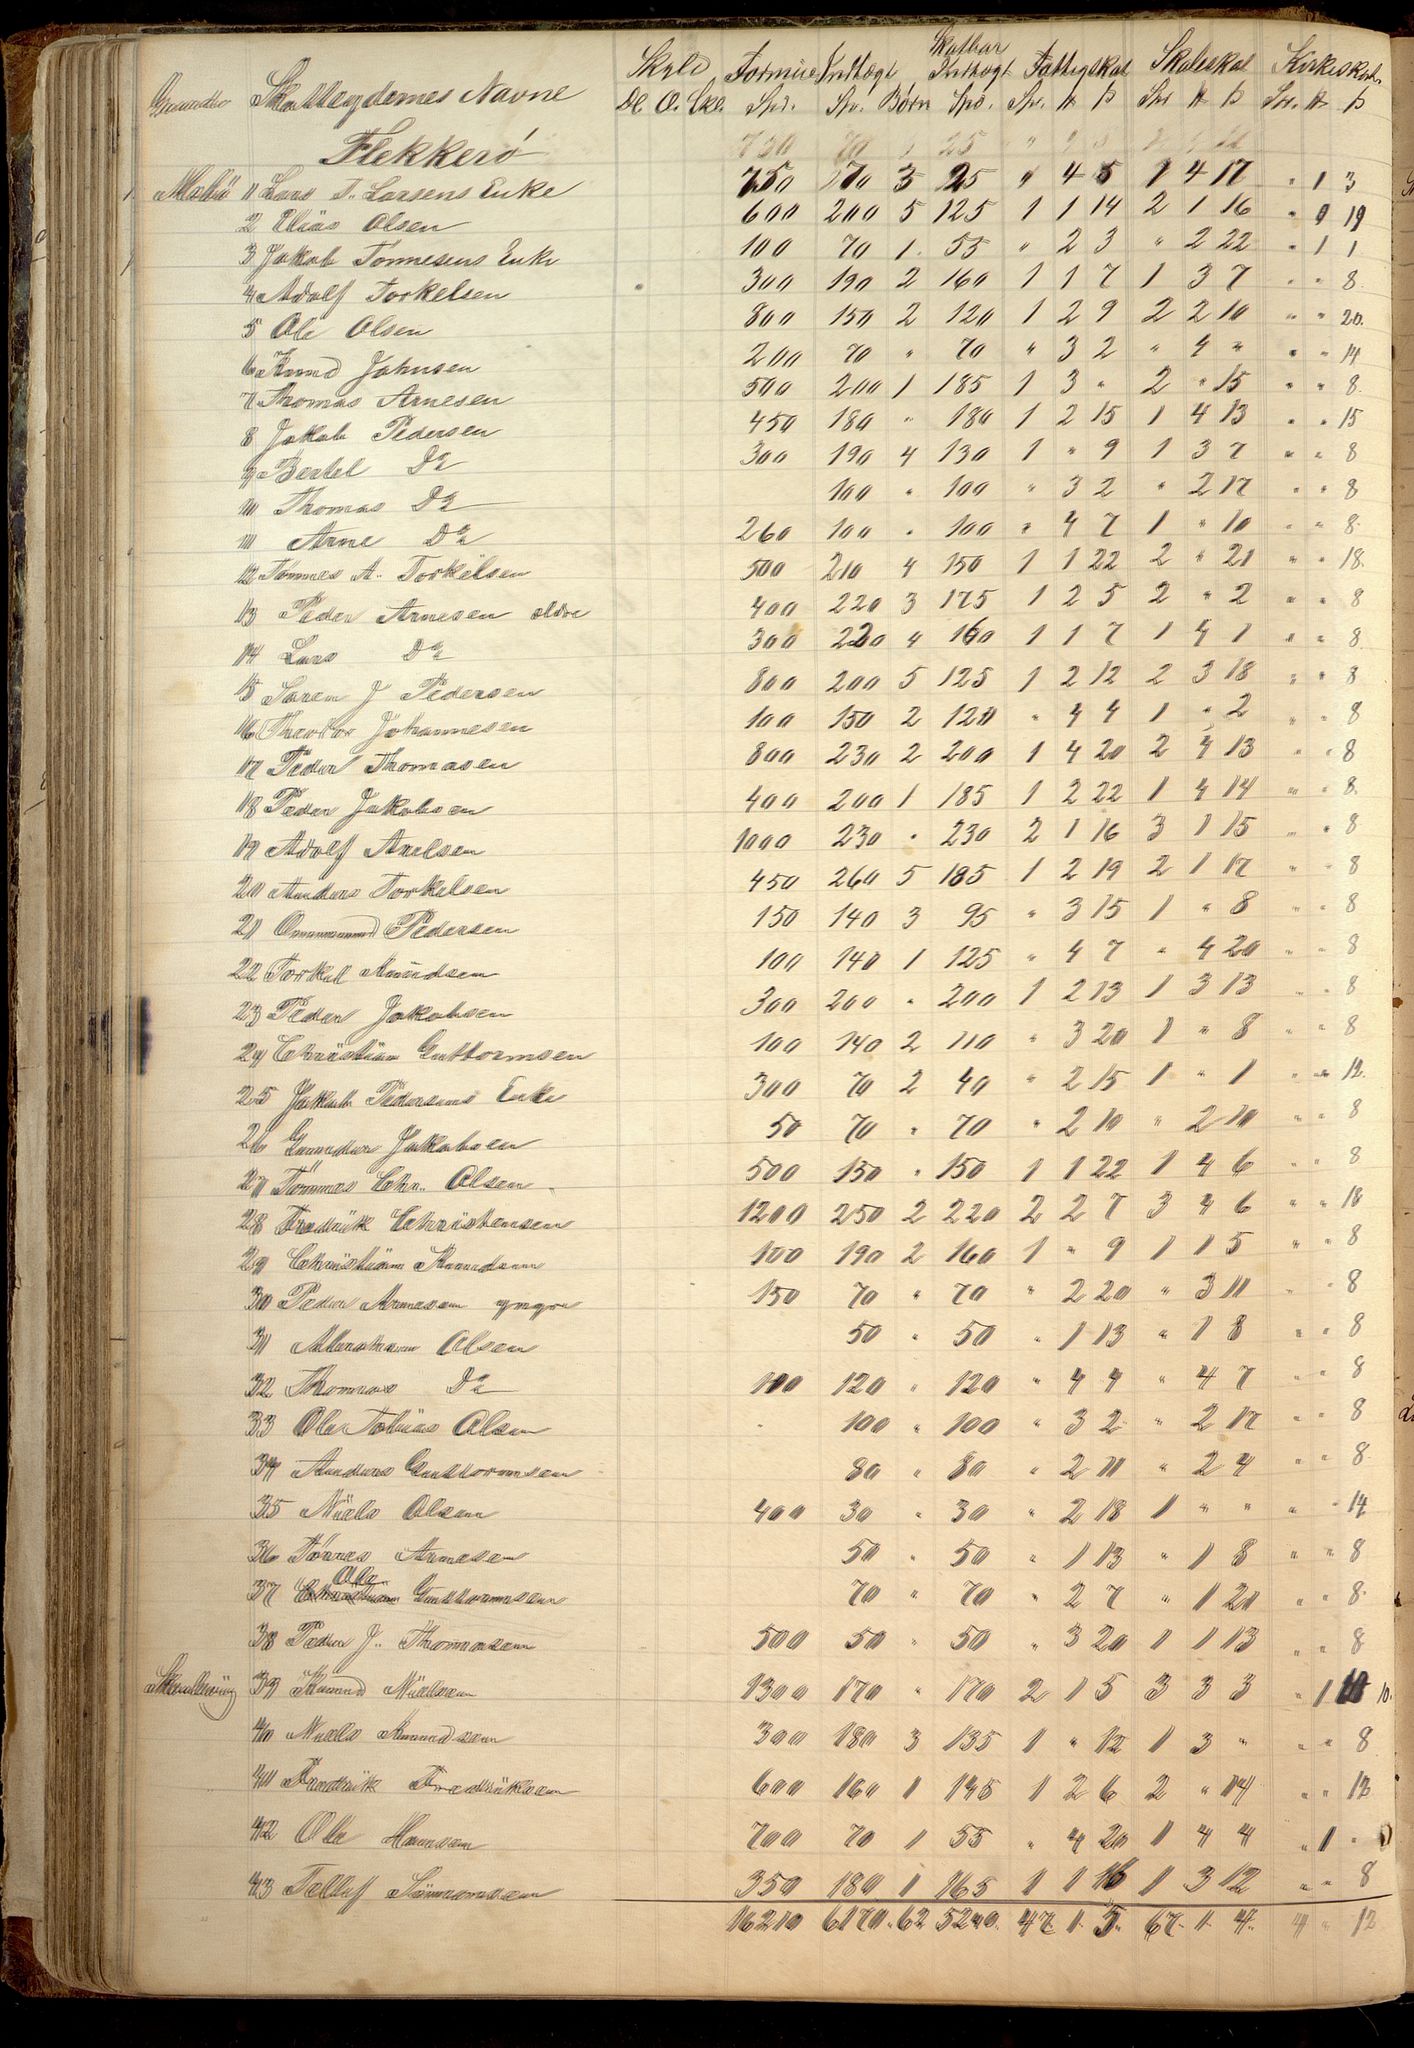 Skatbar
Skyld Formue Indtægt Indtægt Fattigskat Skoleskat Kirkeskat
Skatteydernes Navne Dl. O. Skl. Spd. Sp. Børn Spd. Sp. # ß Spd # ß Sp. # ß
Flekkerø 750 70 25
1 Lars T. Larsens Enke 750 70 3 25 " 4 5 1 4 17 " 1 3
2 Elias Olsen 600 200 5 125 1 1 14 2 1 16 " 19
3 Jakob Tønnesens Enke 100 70 1 55 " 2 3 " 2 22 " 1 1
4 Adolf Torkelsen 300 190 2 160 1 1 7 1 3 7 " " 8
5 Ole Olsen 800 150 2 120 1 2 9 2 2 10 " " 20
6 Knud Johnsen 200 70 " 70 " 3 2 " 4 " " " 14
7 Thomas Arnesen 500 200 1 185 1 3 " 2 " 15 " " 8
8 Jakob Pedersen 450 180 " 180 1 2 15 1 4 13 " " 15
9 Bertel Do 300 190 4 130 1 " 9 1 3 7 " " 8
10 Thomas Do 100 " 100 " 3 2 " 2 17 " " 8
11 Arne Do 260 100 " 100 " 4 7 1 " 10 " " 8
12 Tønnes A. Torkelsen 500 210 4 150 1 1 22 2 " 21 " " 18
13 Peder Arnesen ældre 400 220 3 175 1 2 5 2 " 2 " " 8
14 Lars Do 300 220 4 160 1 1 7 1 4 1 " " 8
15 Søren J Pedersen 800 200 5 125 1 2 12 2 3 18 " " 8
16 Theodor Johannesen 100 150 2 120 " 4 4 1 " 2 " " 8
17 Peder Thomasen 800 230 2 200 1 4 20 2 4 13 " " 8
18 Peder Jakobsen 400 200 1 185 1 2 22 1 4 14 " " 8
19 Adolf Axelsen 1000 230 " 230 2 1 16 3 1 15 " " 8
20 Anders Torkelsen 450 260 5 185 1 2 19 2 1 17 " " 8
21 Ommund Pedersen 150 140 3 95 " 3 15 1 " 8 " " 8
22 Torkel Knudsen 100 140 1 125 " 4 7 " 4 20 " " 8
23 Peder Jakobsen 300 200 " 200 1 2 13 1 3 13 " " 8
24 Christian Guttormsen 100 140 2 110 " 3 20 1 " 8 " " 8
25 Jakob Pedersens Enke 300 70 2 40 " 2 15 1 " 1 " " 12
26 Gunder Jakobsen 50 70 " 70 " 2 10 " 2 10 " " 8
27 Tønnes Chr. Olsen 500 150 " 150 1 1 22 1 4 6 " " 8
28 Fredrik Christensen 1200 250 2 220 2 2 7 3 4 6 " " 18
29 Christian Knudsen 100 190 2 160 1 " 9 1 1 5 " " 8
30 Peder Arnesen yngre 150 70 " 70 " 2 20 " 3 11 " 8
31 Abraham Olsen 50 " 50 " 1 13 " 1 8 " " 8
32 Thomas Do 100 120 " 120 " 4 4 " 4 7 " " 8
33 Ole Tobias Olsen 100 " 100 " 3 2 " 2 17 " " 8
34 Anders Guttormsen 80 " 80 " 2 11 " 2 4 " " 8
35 Niels Olsen 400 30 " 30 " 2 18 1 " " " " 14
36 Tønnes Arnesen 50 " 50 " 1 13 " 1 8 " " 8
Ole
37 Christian Guttormsen 70 " 70 " 2 7 " 1 20 " " 8
38 Peder J. Thomasen 500 50 " 50 " 3 20 1 1 13 " " 8
39 Knud Nielsen 1300 170 " 170 2 1 5 3 3 3 " 1 10 10.
40 Niels Knudsen 300 180 3 135 1 " 12 1 3 " " " 8
41 Fredrik Fredriksen 600 160 1 145 1 2 6 2 " 14 " " 12
42 Ole Hansen 700 70 1 55 " 4 20 1 4 4 " 1 "
43 Tellef Simonsen 350 180 1 165 1 1 16 1 3 12 " " 8
16210 6170 62 5240 47 1 5 67 1 4 4 " 12